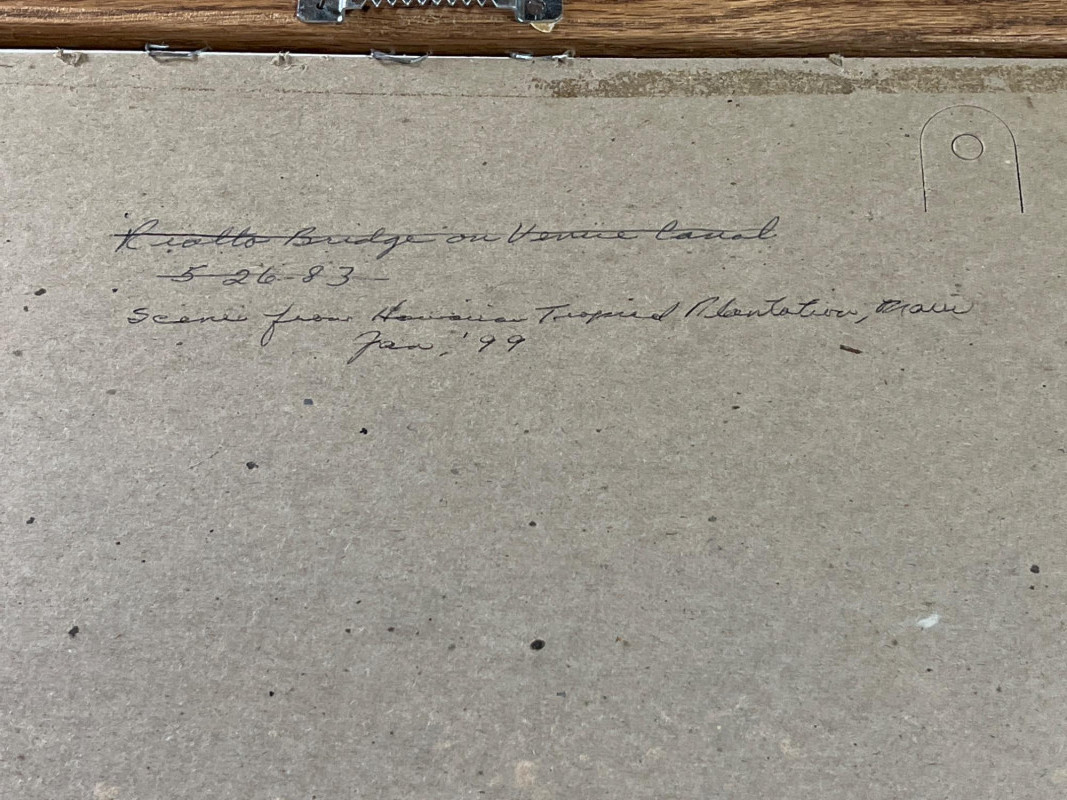 Rialto Bridge on Venice Canal
5-26-83
Scene from Hawaiian Tropical Plantation, Maui
Jan, '99